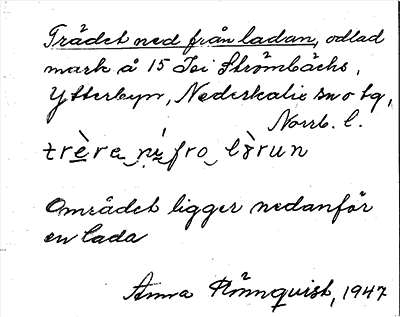 Trädet ned från ladan, odlad
mark å 15 Isi Strömbäcks,
Ytterbyn, Nederkalix sn o tg,
Norrb. l.
Området ligger nedanför
en lada
Anna Rönnquist, 1947